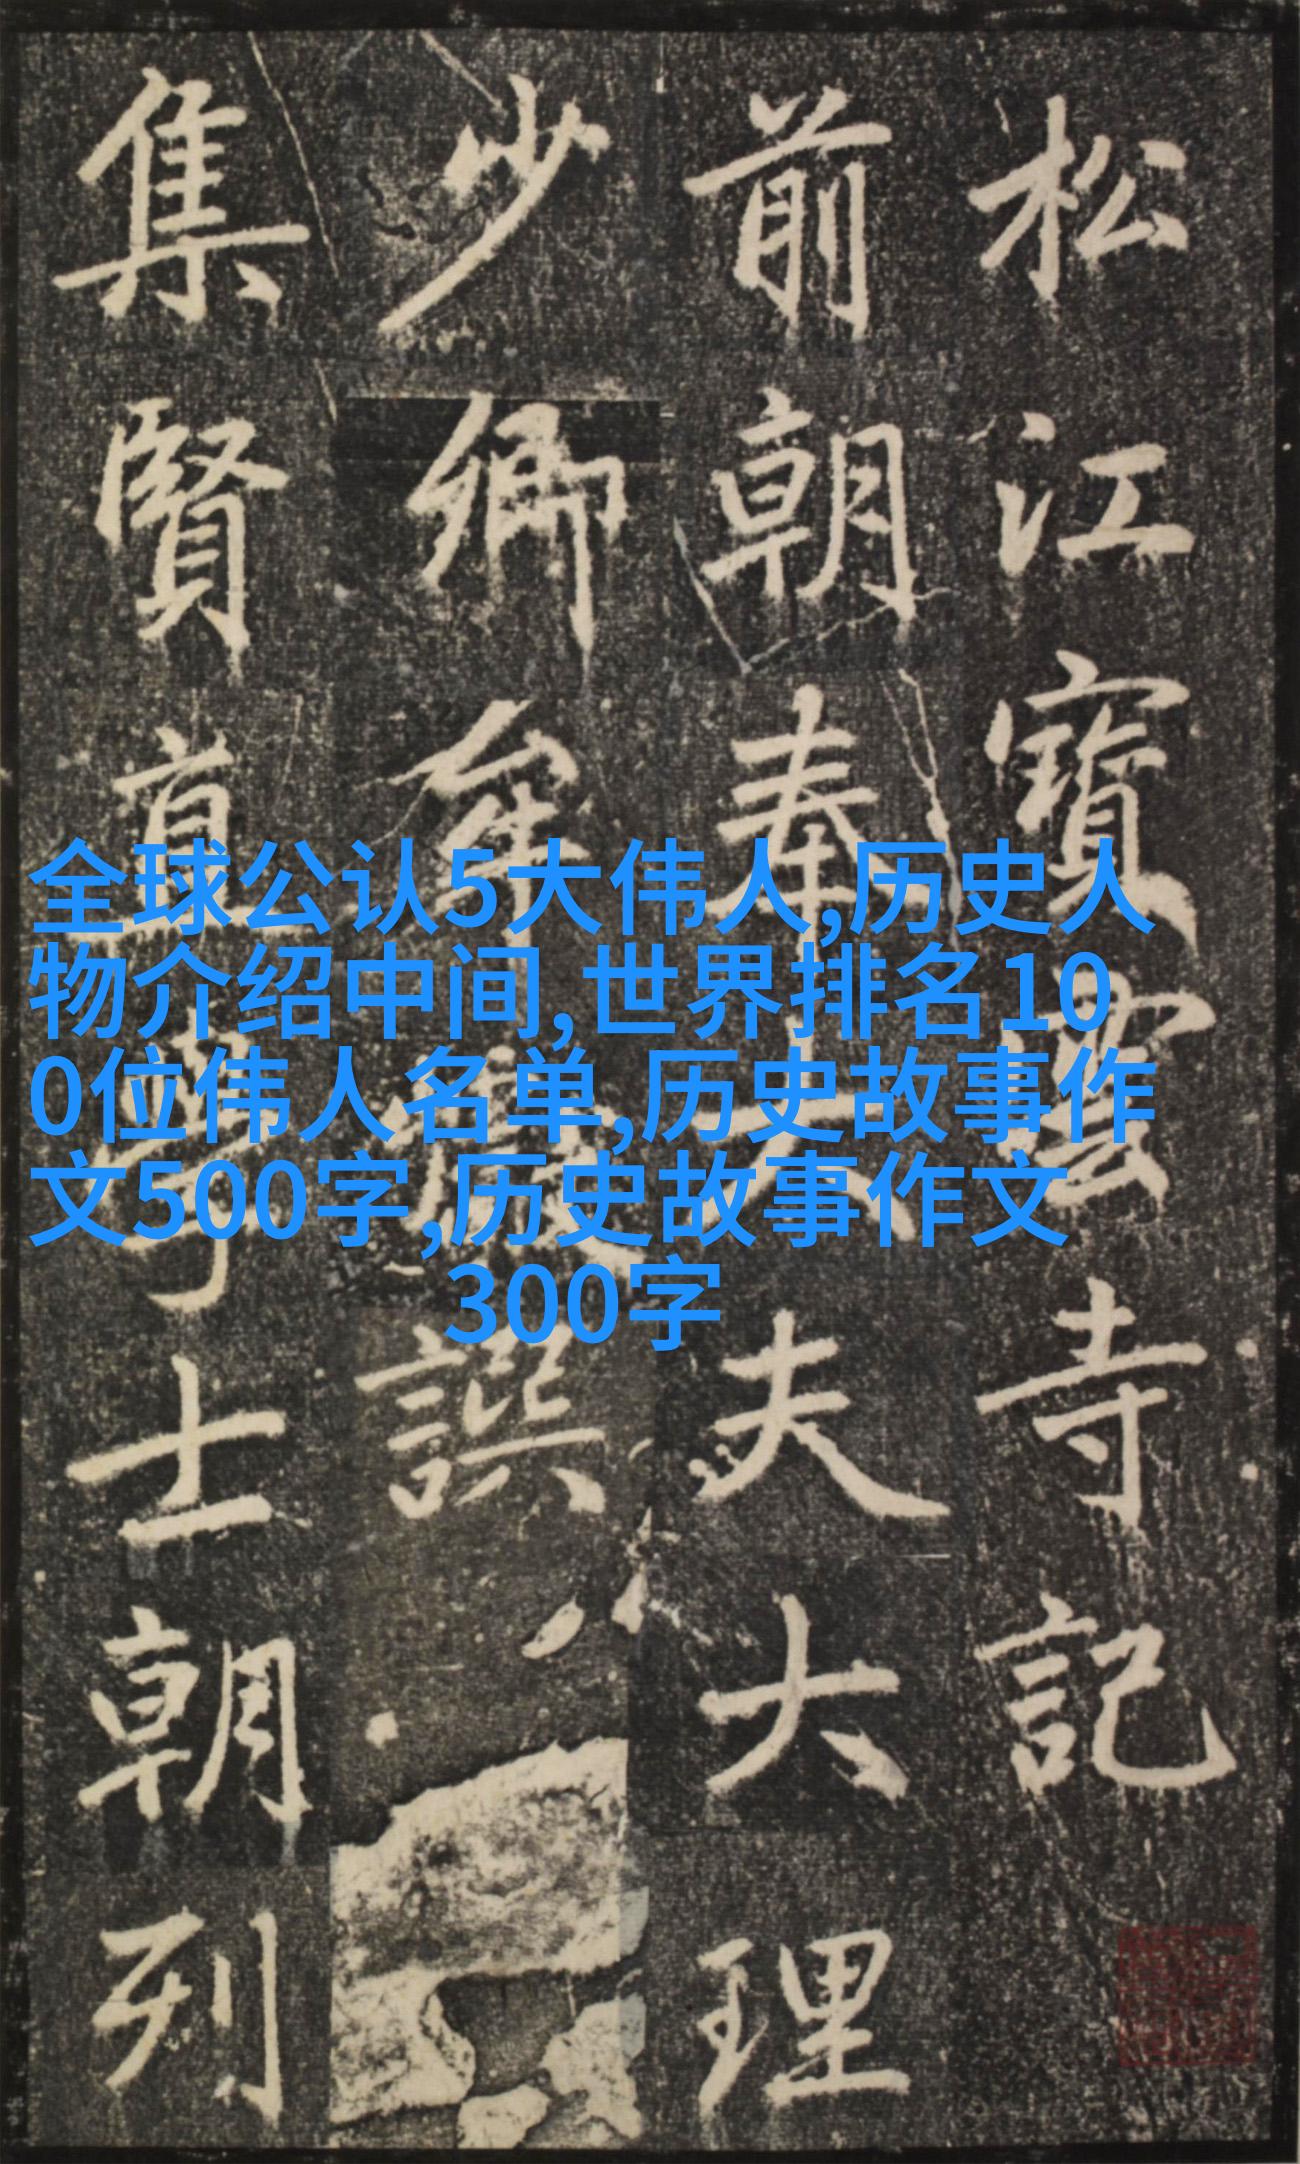 松江寶雲寺記
前朝奉大夫大理
少卿牟巘譔
集賢直學士朝列
全球公认5大伟人,历史人
物介绍中间,世界排名10
0位伟人名单,历史故事作
文500字,历史故事作文
300字